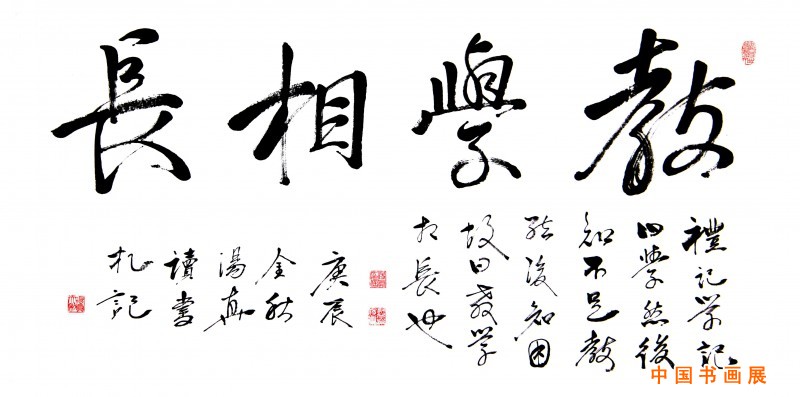 教學相長
禮記學記
曰學然後
知不足教
然後知困
故曰教学
相長也
庚辰
金秋
湯
讀書
札記
中国书画展